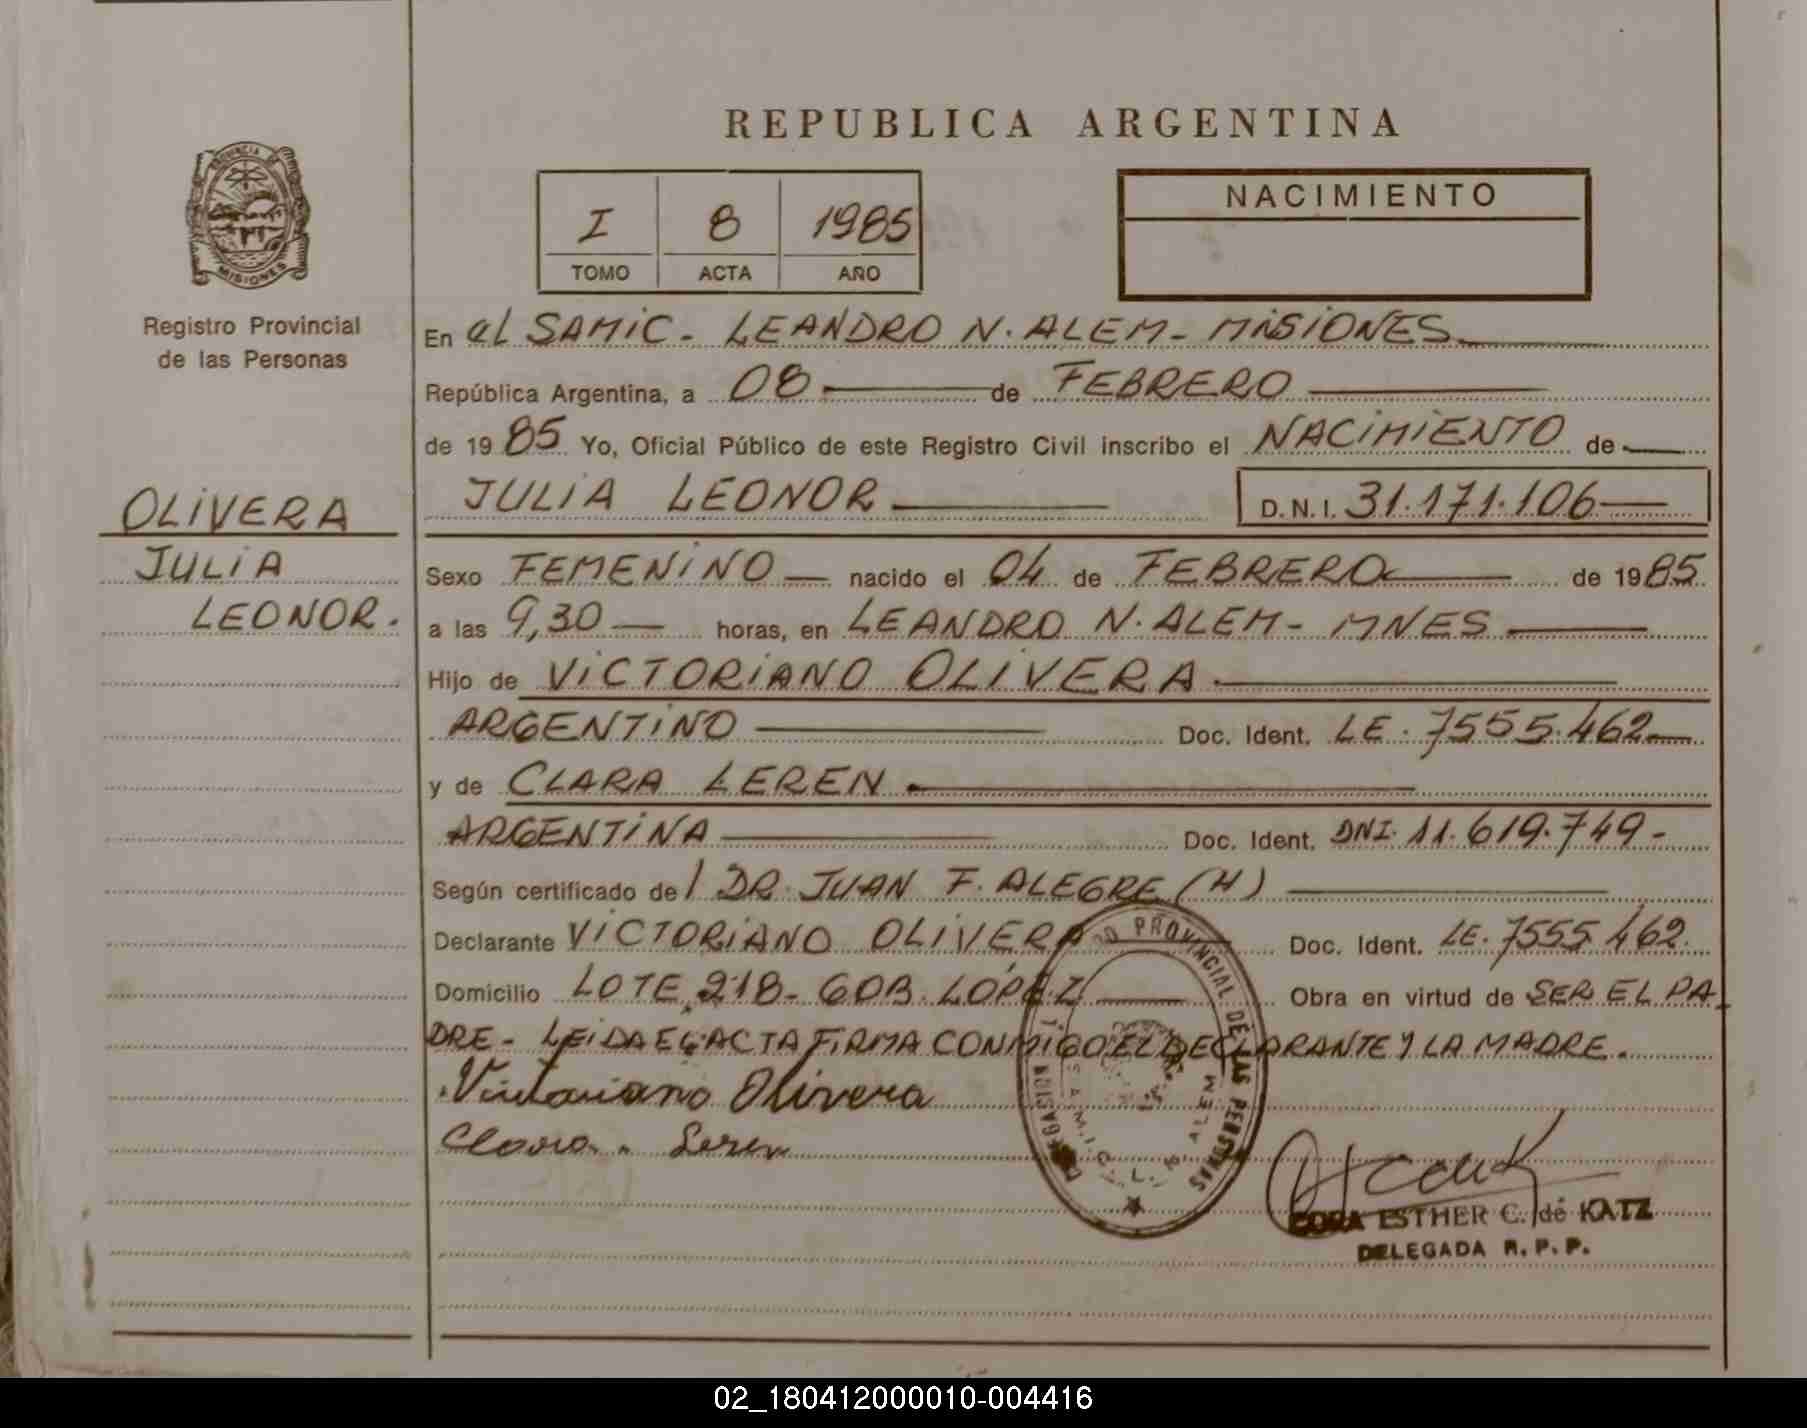 REPUBLICA ARGENTINA
PROVINCIA DE
MISIONES
Registro Provincial
de las Personas
I 8 1985
TOMO ACTA AÑO
NACIMIENTO
En el SAMIC - LEANDRO N. ALEM - MISIONES
República Argentina, a 08 de FEBRERO
de 1985 Yo, Oficial Público de este Registro Civil inscribo el NACIMIENTO de
JULIA LEONOR D.N.I. 31.171.106
OLIVERA
JULIA
LEONOR.
Sexo FEMENINO nacido el 04 de FEBRERO de 1985
a las 9,30 horas, en LEANDRO N. ALEM - MNES
Hijo de VICTORIANO OLIVERA
ARGENTINO Doc. Ident. LE. 7555.462
y de CLARA LEREN
ARGENTINA Doc. Ident. DNI. 11.619.749-
Según certificado de/ DR. JUAN F. ALEGRE (H)
Declarante VICTORIANO OLIVERA Doc. Ident. LE. 7555 462.
Domicilio LOTE 218 - GOB. LÓPEZ Obra en virtud de SER EL PA-
DRE - LEIDA EL ACTA FIRMA CONMIGO EL DECLARANTE Y LA MADRE.
Victoriano Olivera
Clara Leren
PROVINCIAL DE LAS PERSONAS
S.A.M.I.C. L. N. ALEM
CORA ESTHER C. de KATZ
DELEGADA R. P. P.
02_180412000010-004416